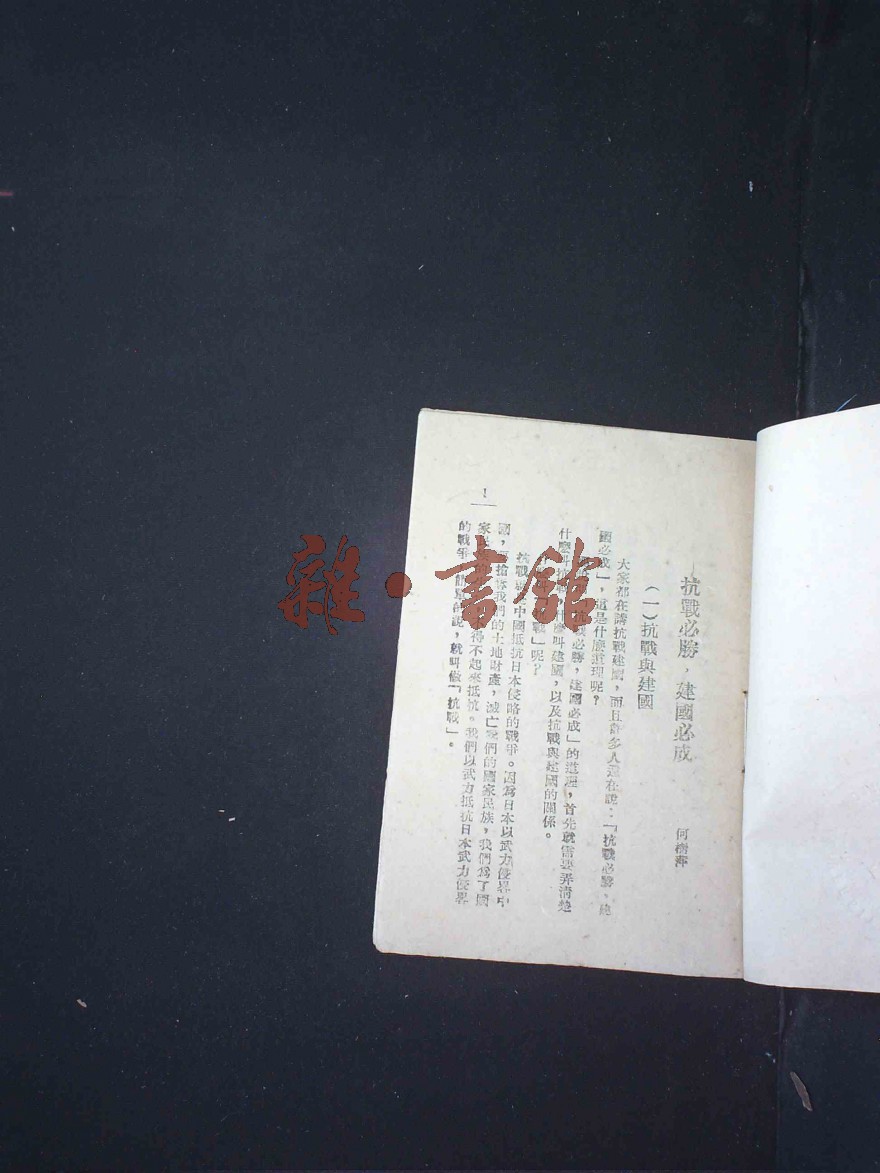 抗戰必勝,建國必成
何樹
(一)抗戰與建國
大家都在講抗戰建國,而且許多人還在說:「抗戰必勝,建
國必成」,這是什麼道理呢?
抗戰必勝,建國必成」的道理,首先就需要弄清楚
什麼叫抗戰,什麼叫建國,以及抗戰與建國的關係。
戰」呢?
抗戰 中國抵抗日本侵略的戰爭。因為日本以武力侵畧中
國,要搶奪我們的土地財產,滅亡我們的國家民族,我們為了國
家 得不起來抵抗。我們以武力抵抗日本武力侵畧
的戰爭, 的說,就叫做「抗戰」。
1
雜·書館